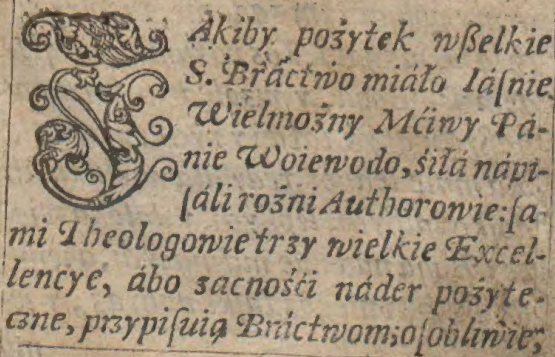 IAkiby pożytek wßelkie
S. Bráctwo miáło Iáſnie
Wielmożny Mćiwy Pá-
nie Woiewodo, śiłá nápi-
ſáli rożni Authorowie: ſa-
mi Theologowie trzy wielkie Excel-
lencye, ábo zacnośći náder pożyte-
czne, przypiſuią Bráctwom; oſobliwie,